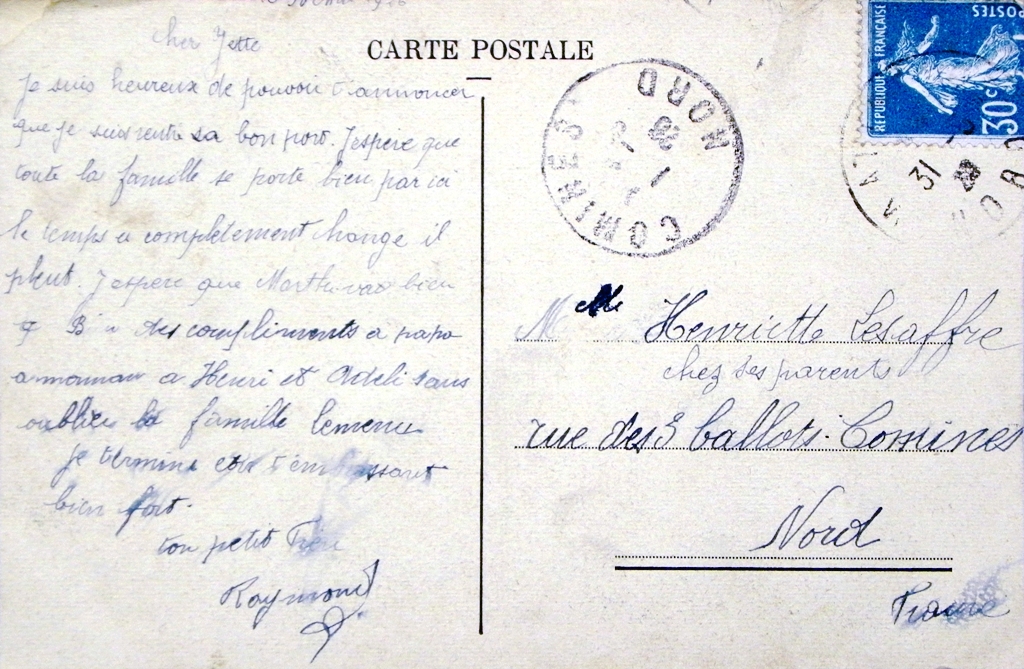 Cher Jette
CARTE POSTALE
je suis heureux de pouvoir t'annoncer
que je suis rentre sa bon port. J'espère que
toute la famille se porte bien par ici
le temps a completement change il
pleut. J'espere que Marthe va bien
des compliments a papa
a maman a Henri et Adeli sans
oublier la famille
je termine en t'embrassant
bien fort.
ton petit
Raymond
COMINES
NORD
REPUBLIQUE FRANÇAISE
POSTES
30c
31
Melle Henriette Lesaffre
chez ses parents
rue des 3 ballots. Comines
Nord
France